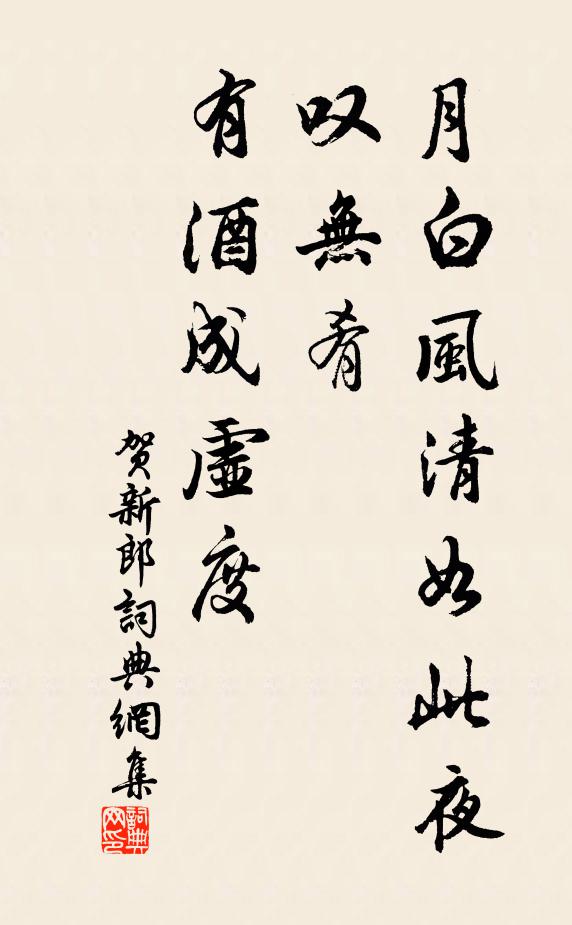 月白風清如此夜
叹無肴
有酒成虛度
贺新郎詞典網集
詞典
网印